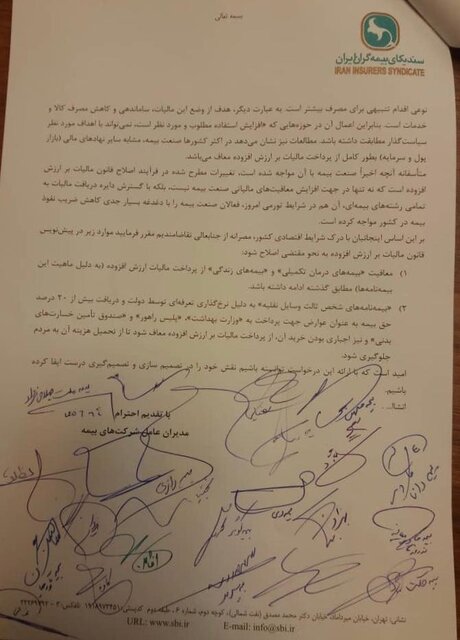 بسمه تعالی
سندیکای بیمه گران ایران
IRAN INSURERS SYNDICATE
نوعی اقدام تنبیهی برای مصرف بیشتر است. به عبارت دیگر، هدف از وضع این مالیات، ساماندهی و کاهش مصرف کالا و
خدمات است. بنابراین اعمال آن در حوزه‌هایی که «افزایش استفاده مطلوب و مورد نظر است، نمی‌تواند با اهداف مورد نظر
سیاست‌گذار مطابقت داشته باشد. مطالعات نیز نشان می‌دهد در اکثر کشورها صنعت بیمه، مشابه سایر نهادهای مالی (بازار
پول و سرمایه) بطور کامل از پرداخت مالیات بر ارزش افزوده معاف می‌باشد.
متأسفانه آنچه اخیراً صنعت بیمه با آن مواجه شده است، تغییرات مطرح شده در فرآیند اصلاح قانون مالیات بر ارزش
افزوده است که نه تنها در جهت افزایش معافیت‌های مالیاتی صنعت بیمه نیست، بلکه با گسترش دایره دریافت مالیات به
تمامی رشته‌های بیمه‌ای، آن هم در شرایط تورمی امروز، فعالان صنعت بیمه را با دغدغه بسیار جدی کاهش ضریب نفوذ
بیمه در کشور مواجه کرده است.
بر این اساس اینجانبان با درک شرایط اقتصادی کشور، مصرانه از جنابعالی تقاضامندیم مقرر فرمایید موارد زیر در پیش‌نویس
قانون مالیات بر ارزش افزوده به نحو مقتضی اصلاح شود:
۱) معافیت «بیمه‌های درمان تکمیلی» و «بیمه‌های زندگی» از پرداخت مالیات ارزش افزوده (به دلیل ماهیت این
بیمه‌نامه‌ها) مطابق گذشته ادامه داشته باشد.
۲) «بیمه‌نامه‌های شخص ثالث وسایل نقلیه» به دلیل نرخ‌گذاری تعرفه‌ای توسط دولت و دریافت بیش از ۲۰ درصد
حق بیمه به عنوان عوارض جهت پرداخت به «وزارت بهداشت»، «پلیس راهور» و «صندوق تأمین خسارت‌های
بدنی» و نیز اجباری بودن خرید آن، از پرداخت مالیات بر ارزش افزوده معاف شود تا از تحمیل هزینه آن به مردم
جلوگیری شود.
امید است که با ارائه این درخواست توانسته باشیم نقش خود را در تصمیم سازی و تصمیم‌گیری درست ایفا کرده
باشیم.
انشاا...
با تقدیم احترام
مدیران عامل شرکت‌های بیمه
نشانی: تهران، خیابان میرداماد، خیابان دکتر محمد مصدق (نفت شمالی)، کوچه دوم، شماره ۶، طبقه دوم
URL: www.sbi.ir
E-mail: info@sbi.ir